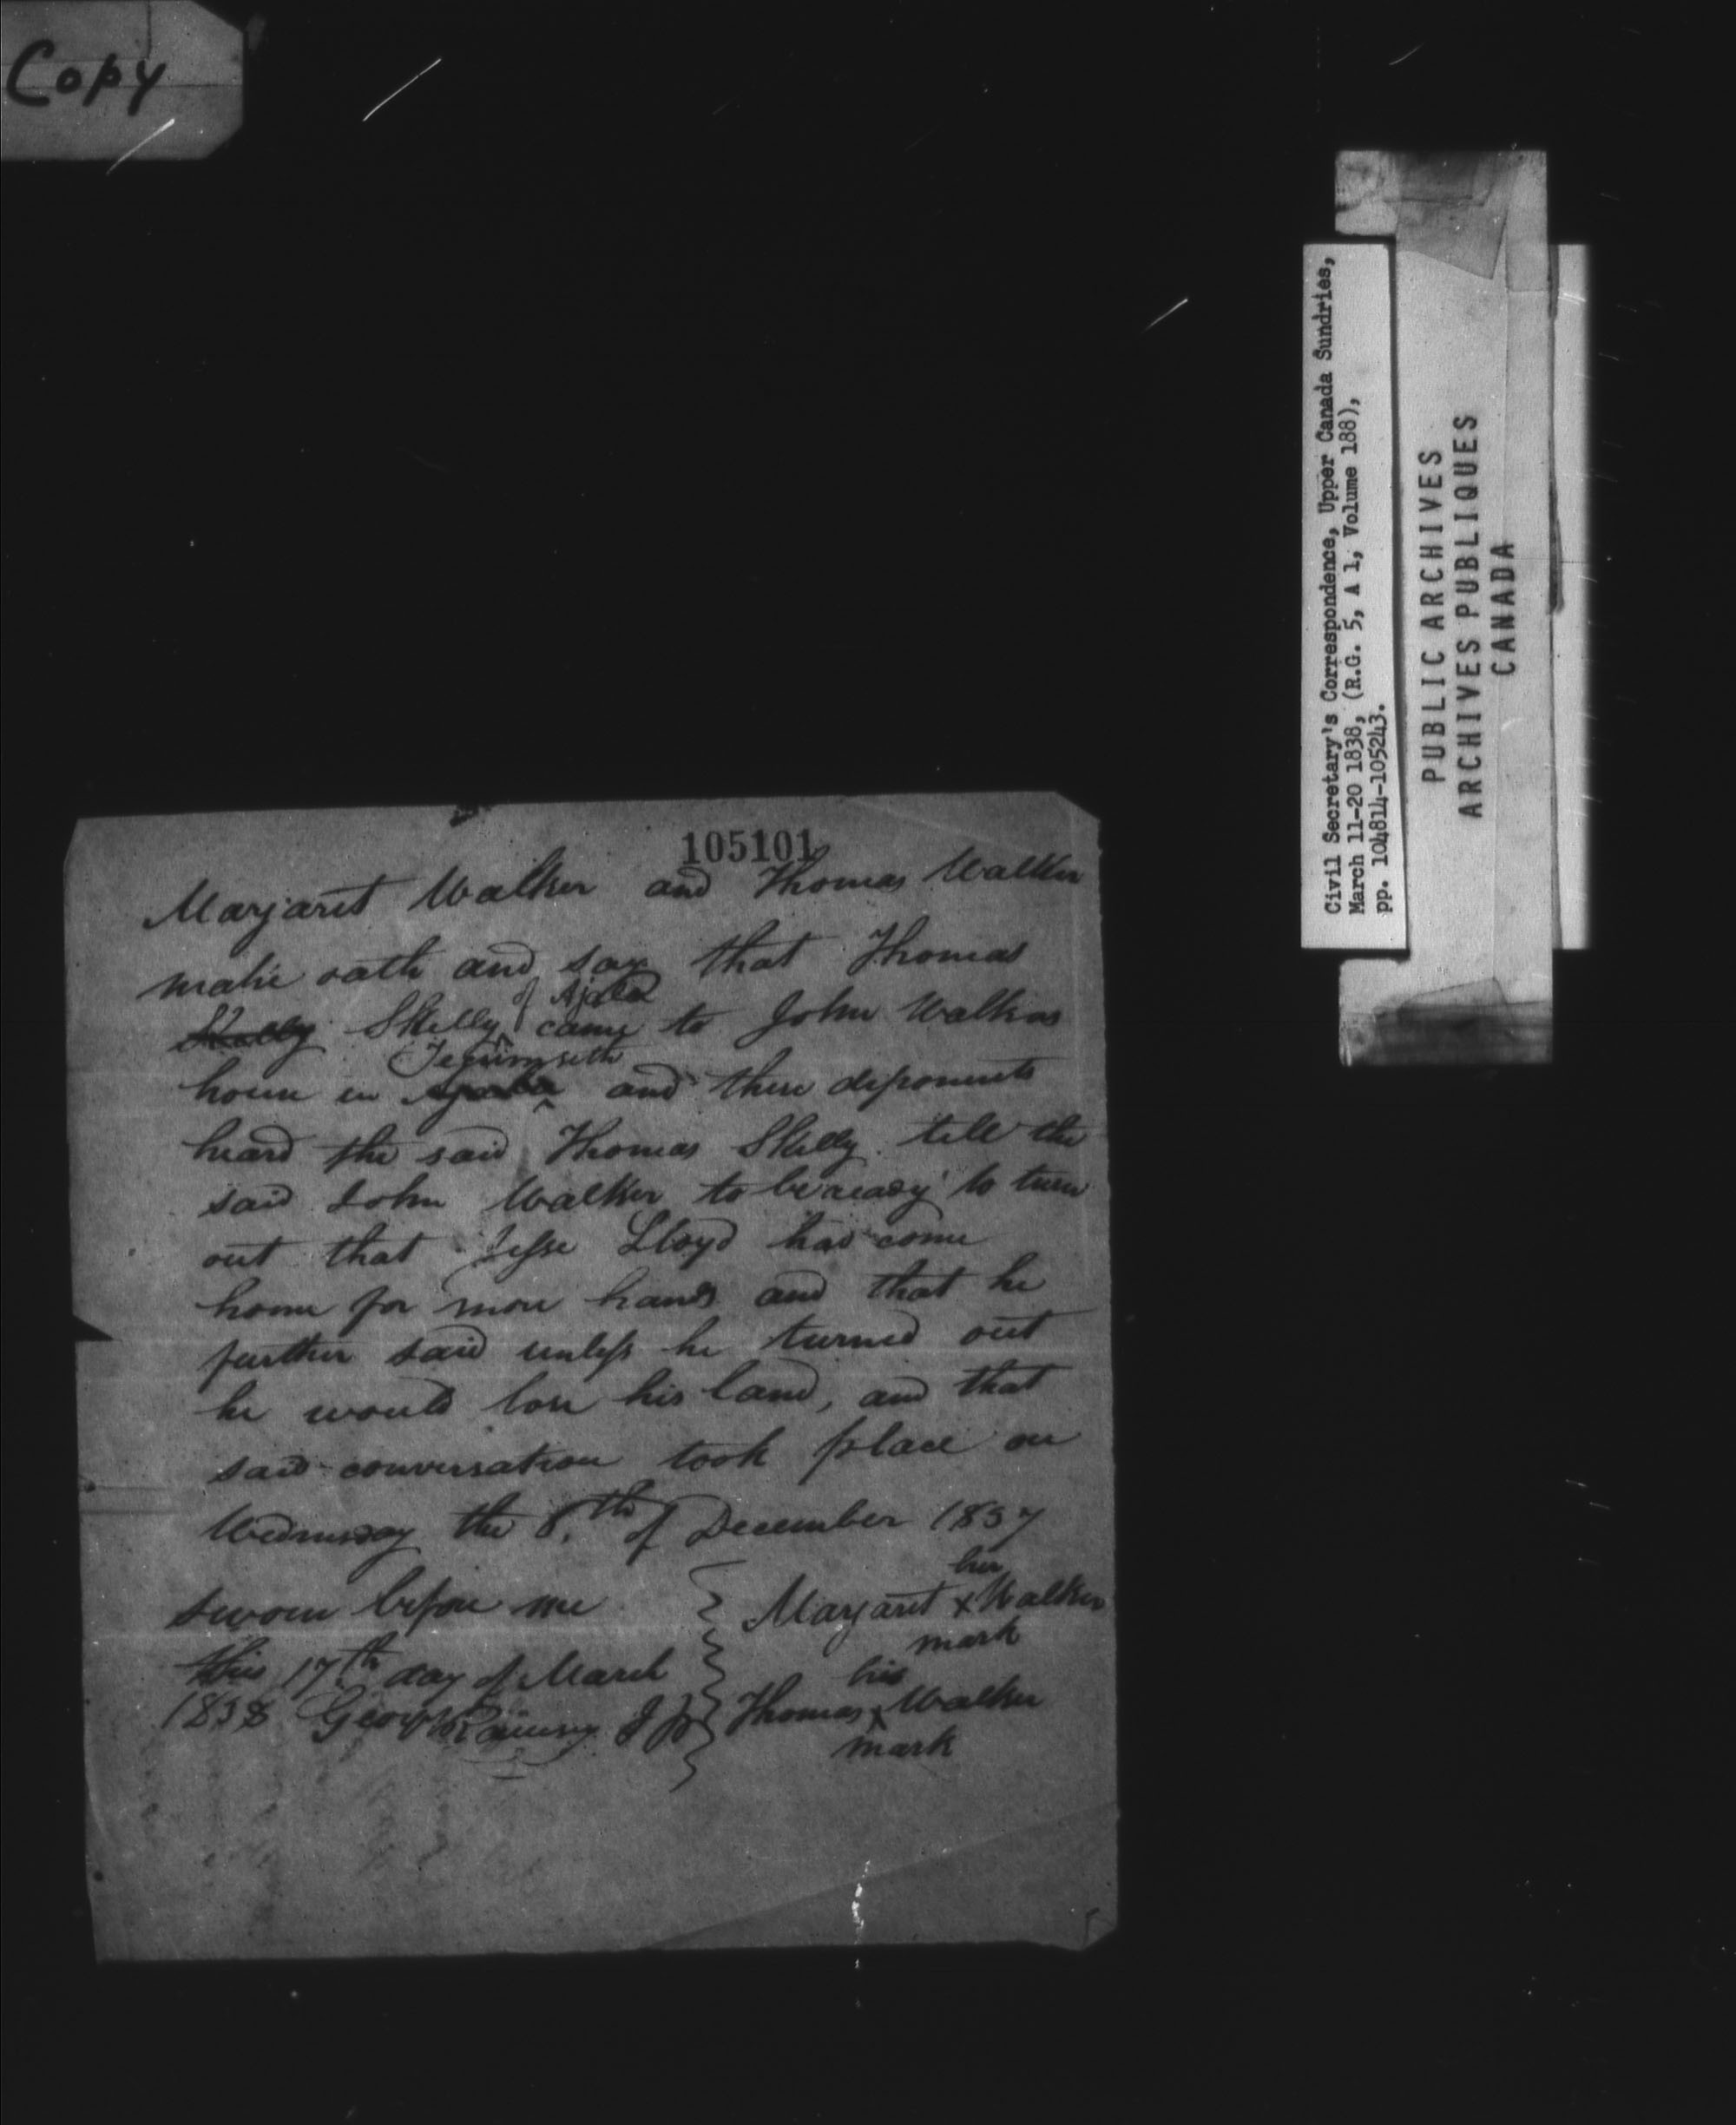 Copy
105101
Margaret Walker and Thomas Walker
make oath and say that Thomas
of Ajala
Skelly Skelly came to John Walkers
Tecumseth
house in Ajala and there deponents
heard the said Thomas Skelly tell the
said John Walker to be ready to turn
out that Jesse Lloyd had come
home for more hands and that he
further said unless he turned out
he would lose his land, and that
said conversation took place on
Wednesday the 6.th of December 1837
sworn before me
this 17th day of March
1838 George J P
her
Margaret x Walker
mark
his
Thomas x Walker
mark
Civil Secretary's Correspondence, Upper Canada Sundries,
March 11-20 1838, (R.G. 5, A 1, Volume 188),
pp. 104814-105243.
PUBLIC ARCHIVES
ARCHIVES PUBLIQUES
CANADA